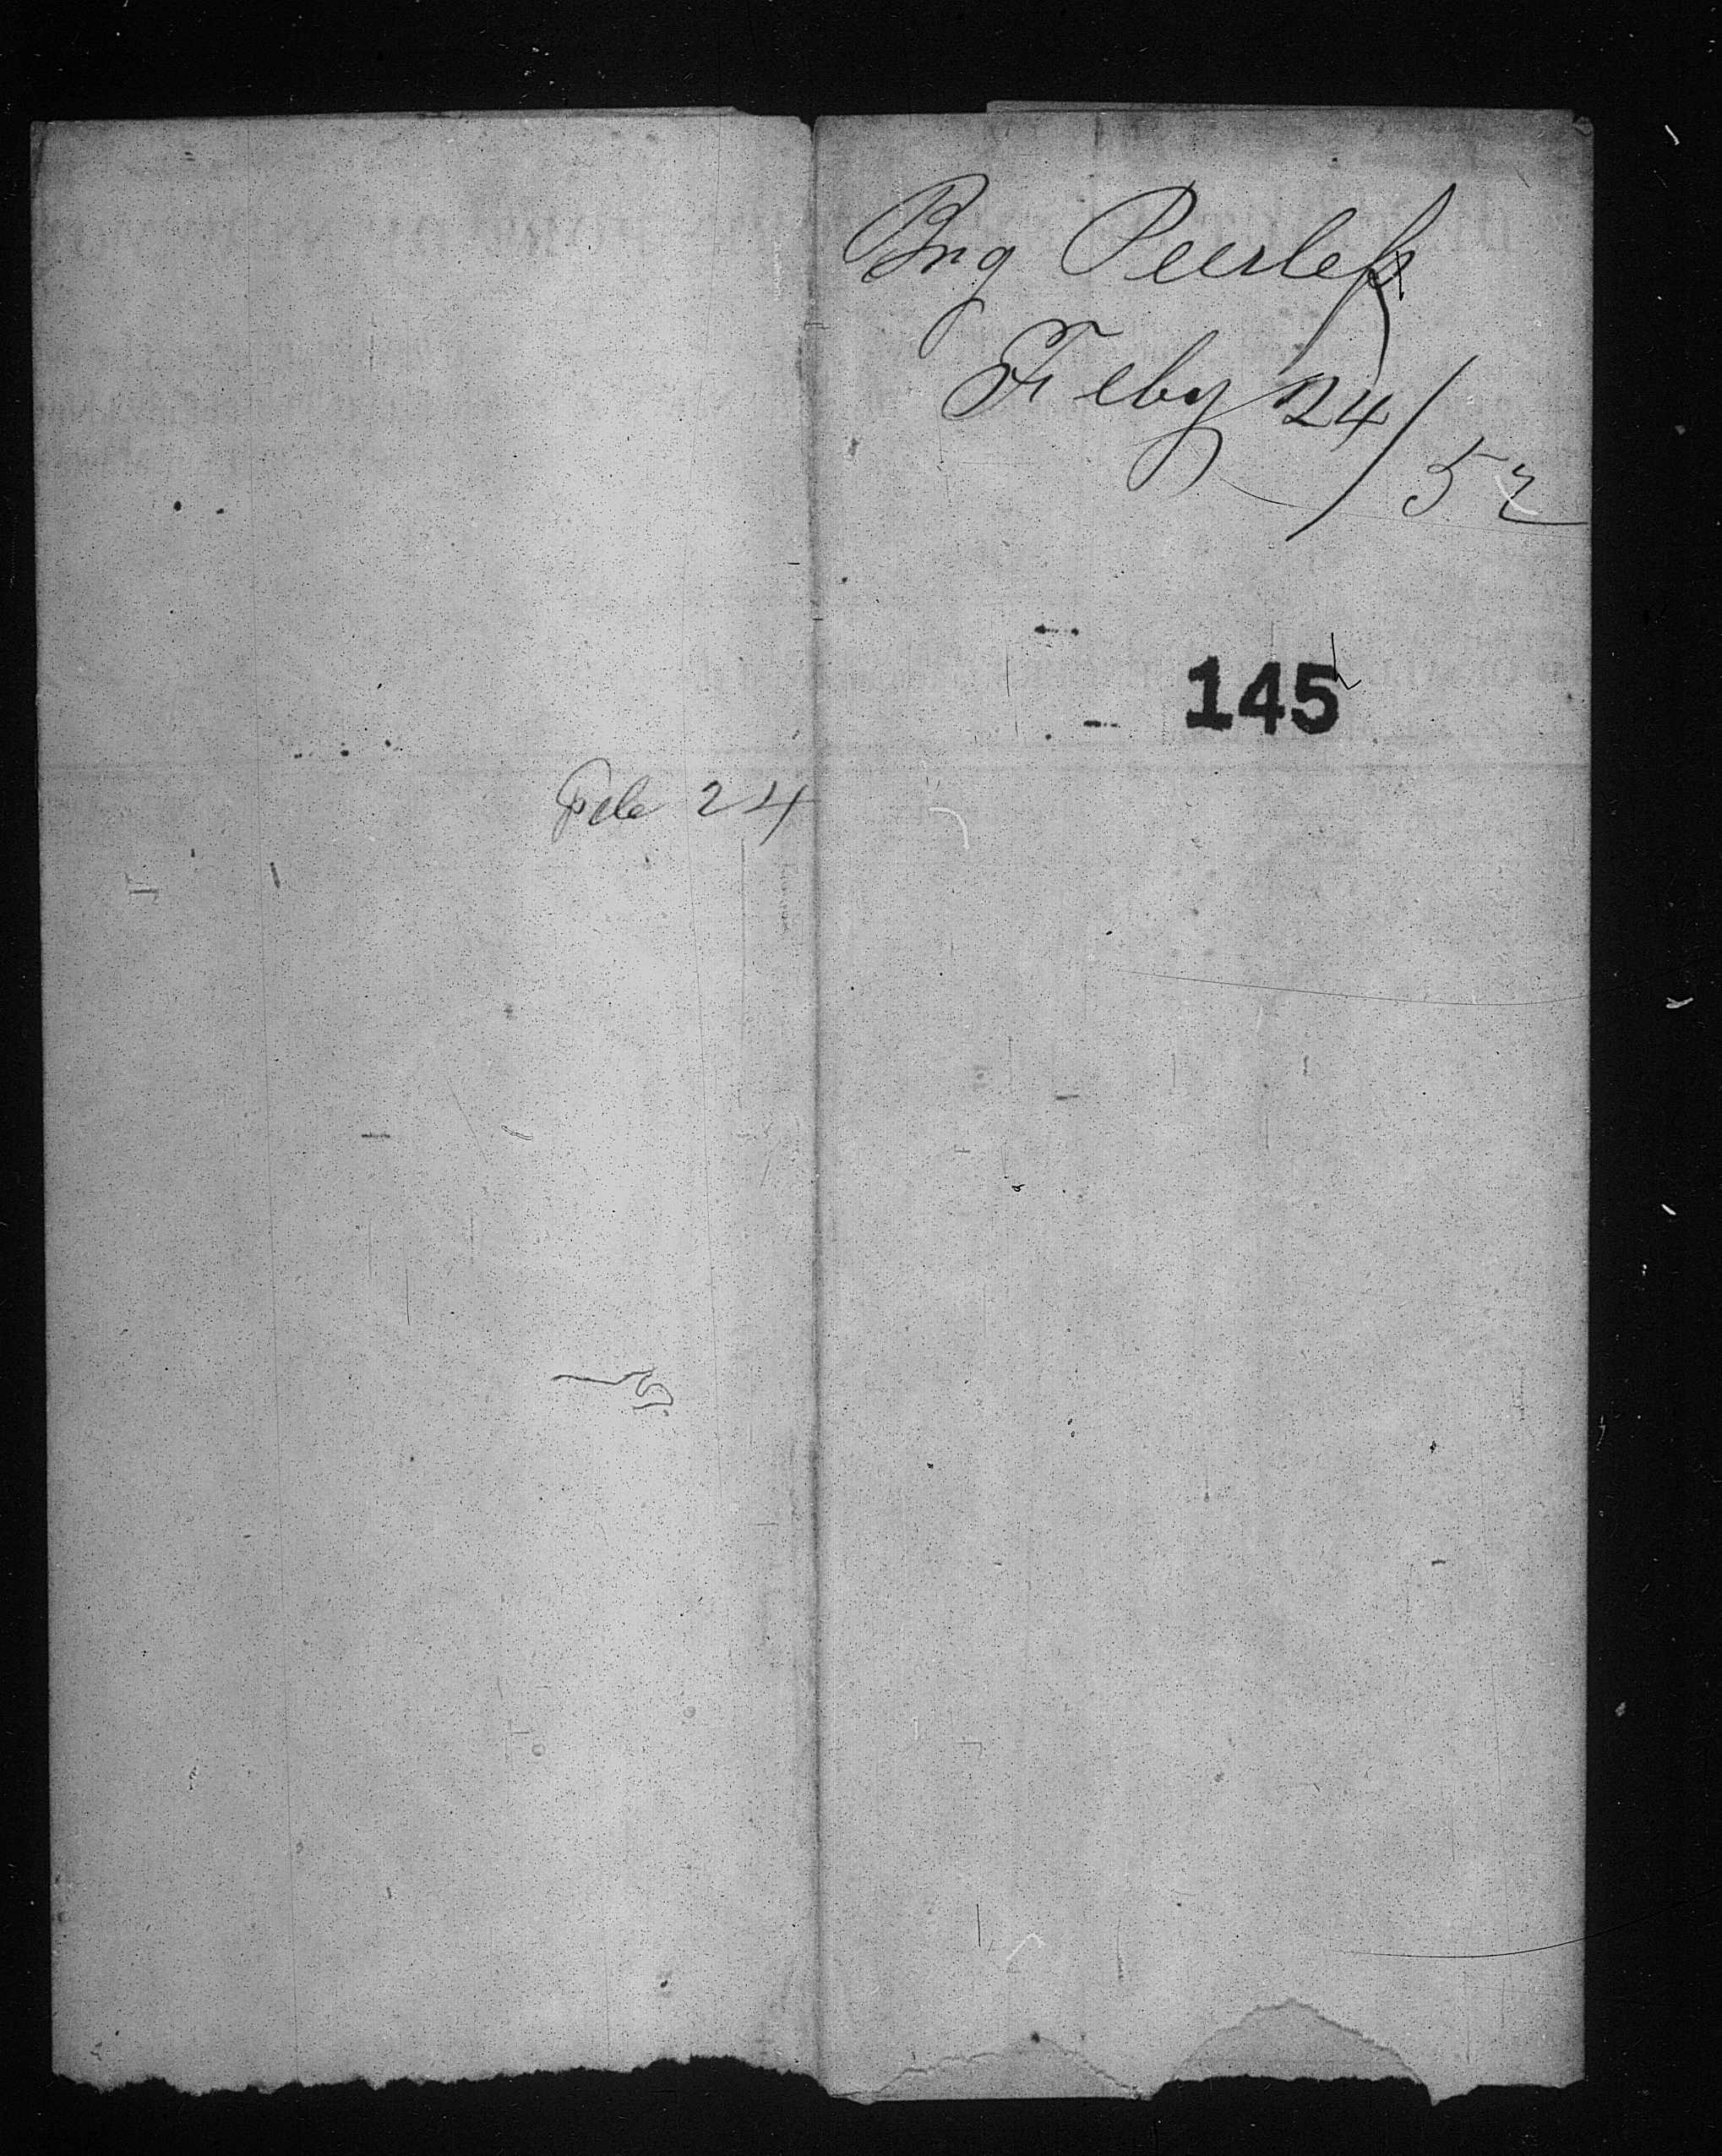 Brig Peerless
Feby 24/52
145
Feb 24